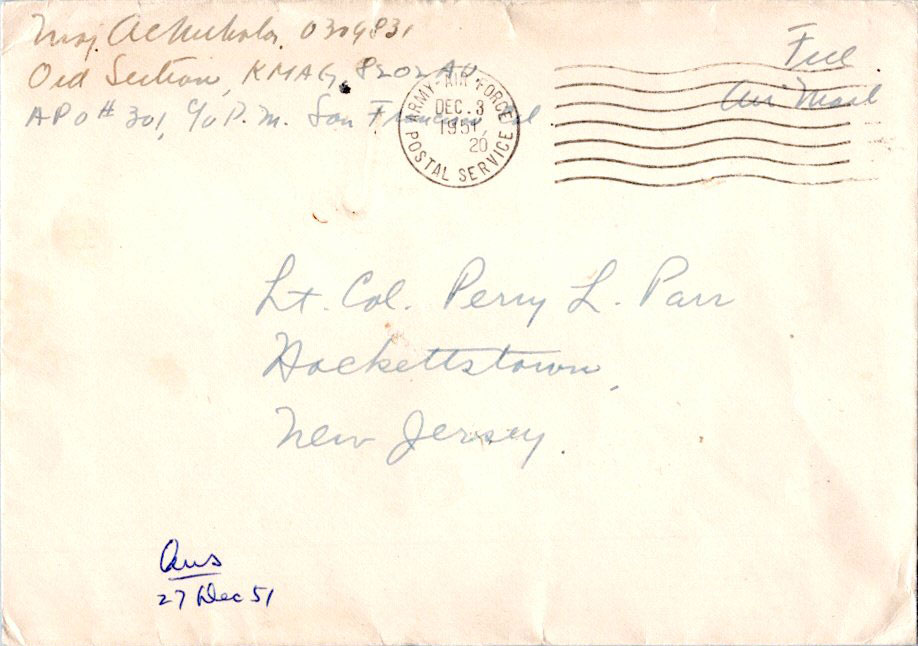 Maj. AC Nicholas, 0309831
Ord Section, KMAG, 8202 AU
APO # 301, c/o P.M. San Francisco, Cal
Free
Air Mail
ARMY-AIR FORCE
DEC. 3
1951
20
POSTAL SERVICE
Lt. Col. Perry L. Parr
Hackettstown,
New Jersey.
Ans
27 Dec 51